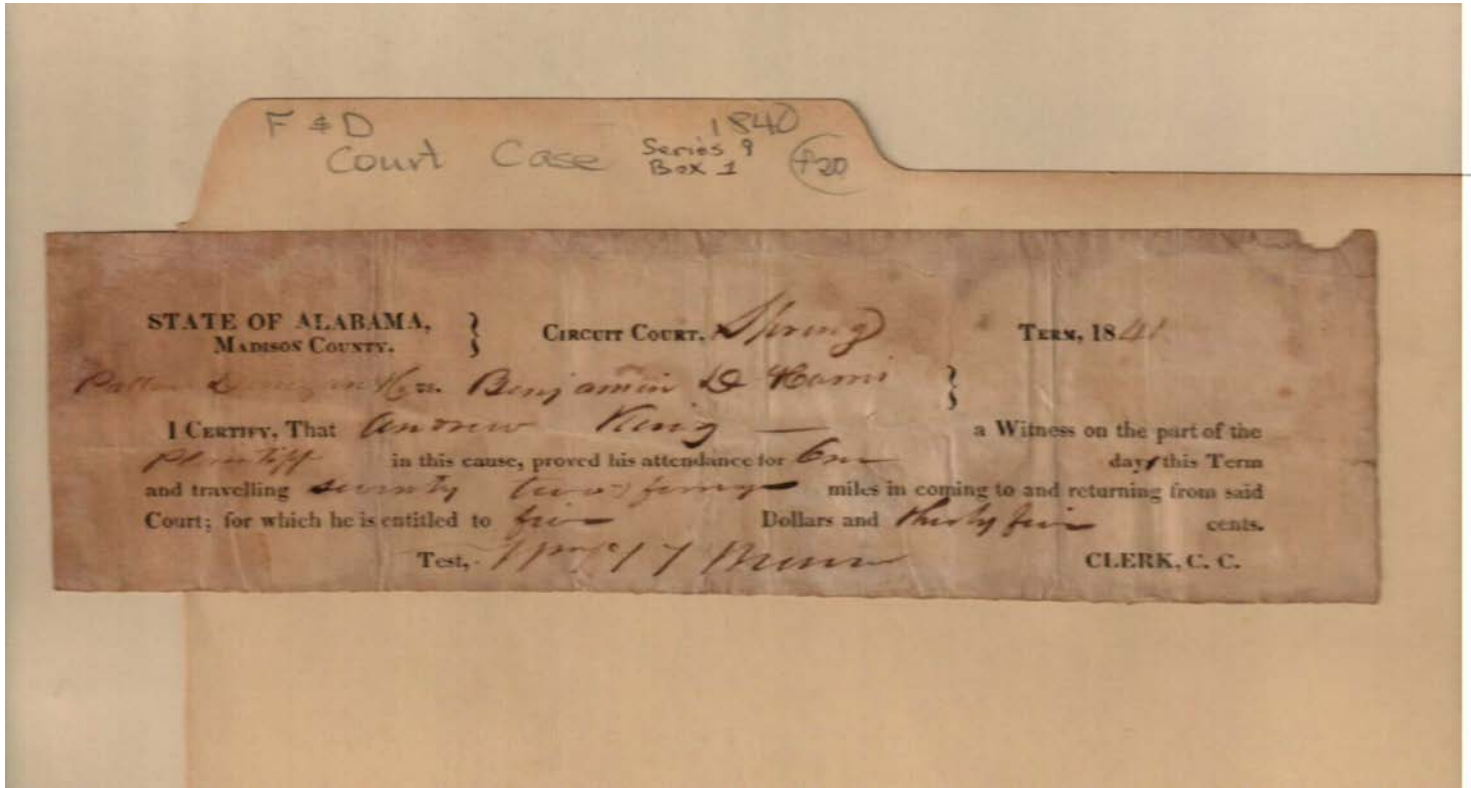 F & D 1840
Court Case Series 9
Box 1
F20
STATE OF ALABAMA, } CIRCUIT COURT, Spring TERM, 1841
MADISON COUNTY.
vs. Benjamin D Harris }
I CERTIFY, That Andrew King — a Witness on the part of the
Plaintiff in this cause, proved his attendance for One day this Term
and travelling seventy two miles in coming to and returning from said
Court; for which he is entitled to five Dollars and thirty five cents.
Test, Brown CLERK, C. C.